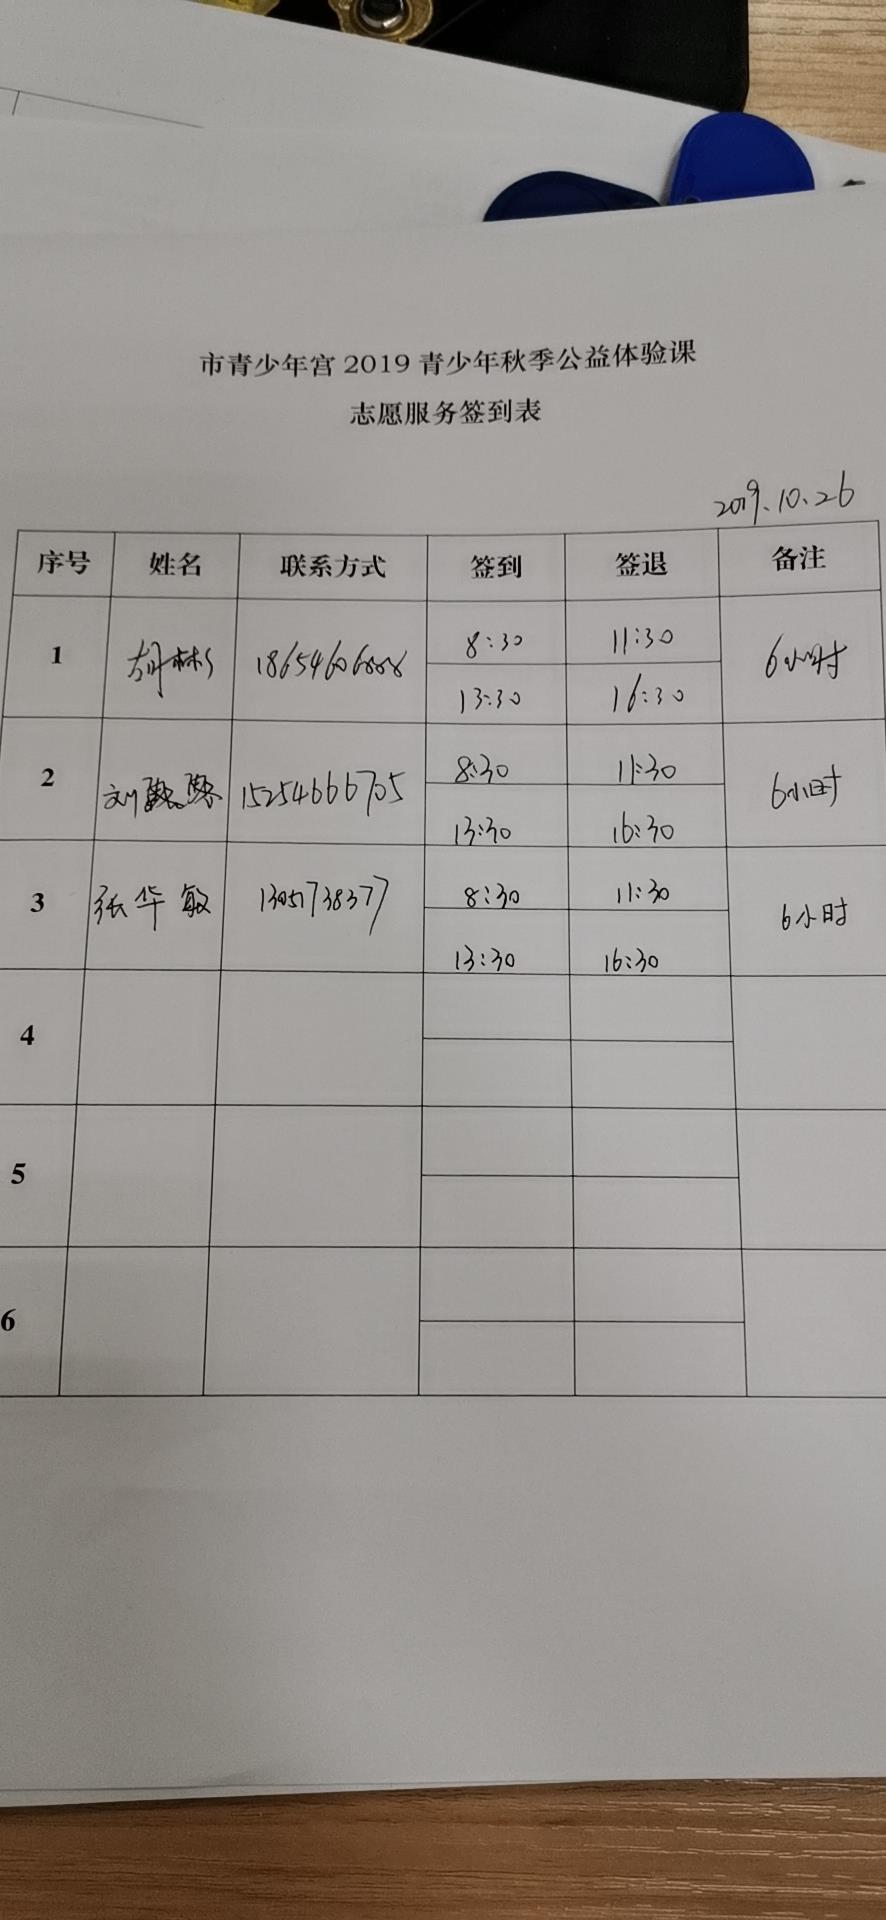 市青少年宫 2019 青少年秋季公益体验课
志愿服务签到表
2019.10.26
序号 姓名 联系方式 签到 签退 备注
1 胡彬 8:30 11:30 6小时
13:30 16:30
2 刘 15254666705 8:30 11:30 6小时
13:30 16:30
3 张华敏 13051738377 8:30 11:30 6小时
13:30 16:30
4
5
6